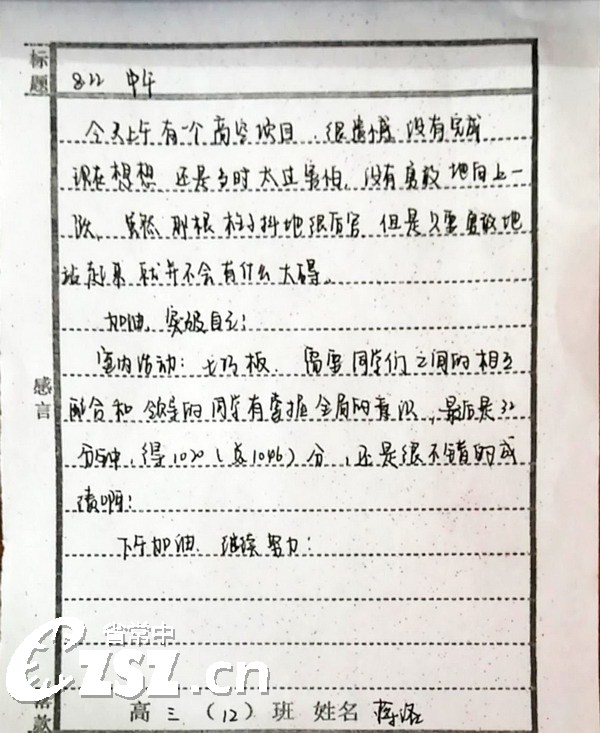 标题
8.22 中午
今天上午有一个高空项目,很遗憾没有完成
现在想想 还是当时太过害怕,没有勇敢地向上一
跃,虽然那根柱子抖地很厉害 但是只要勇敢地
站起来就并不会有什么大碍。
加油,突破自己!
室内活动:七巧板. 需要同学们之间的相互
感言
配合和领导的同学有掌握全局的意识,最后是32
分钟,得1020(或1046)分,还是很不错的成
绩啊!
下午加油 继续努力!
省常中
CZSZ.cn
落款
高三(12)班 姓名 蒋